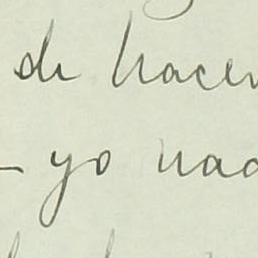 de hacer
yo nad